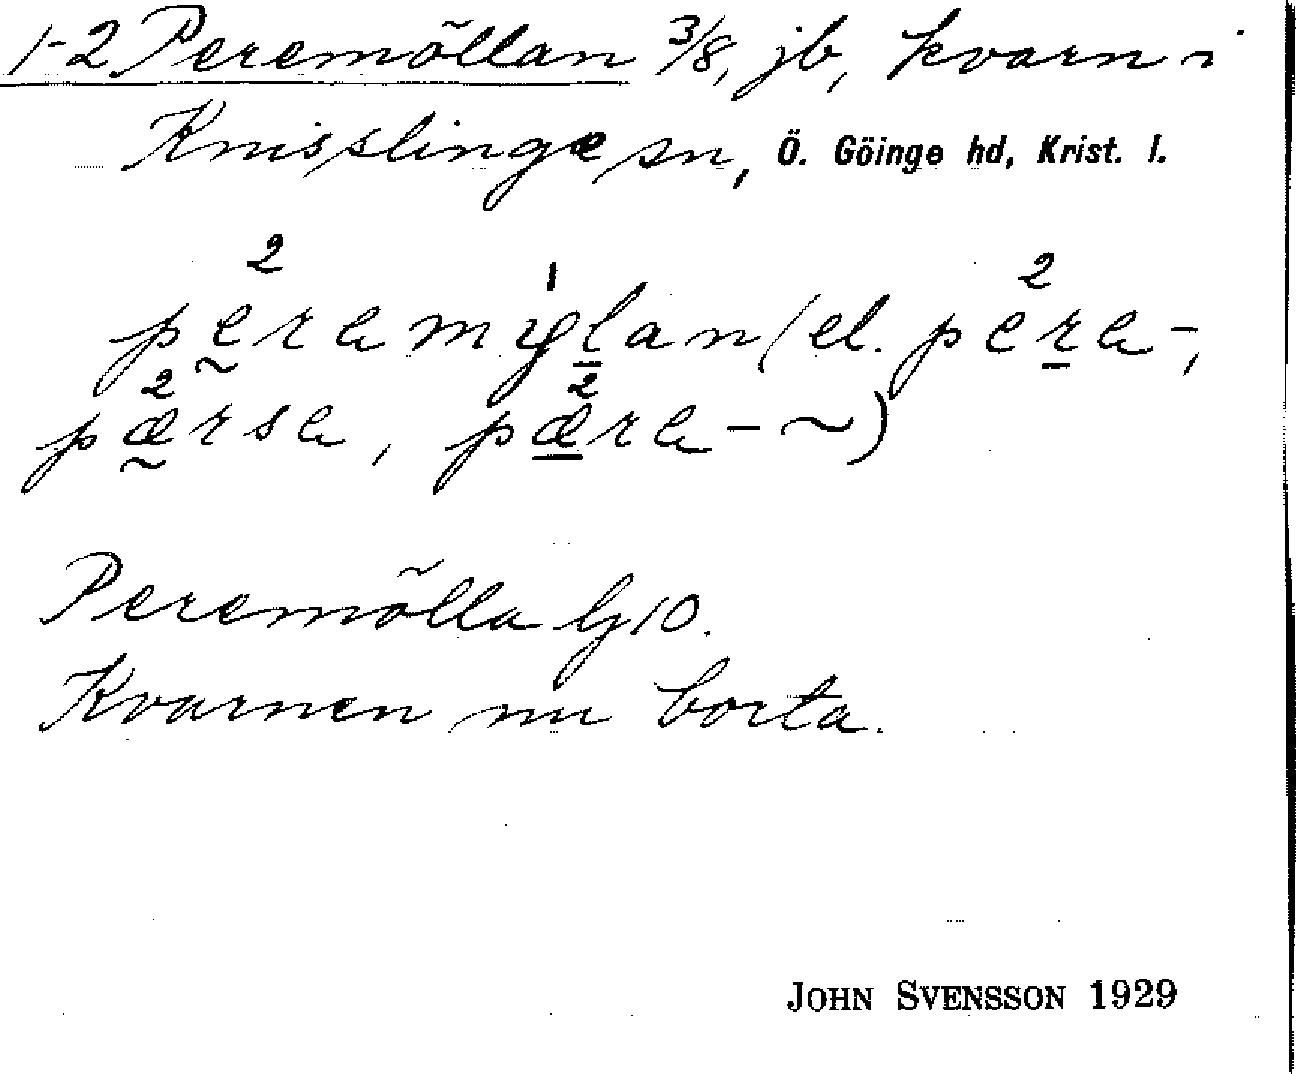 1-2 Peremöllan 3/8, jb, kvarn i
Knisslinge sn, Ö. Göinge hd, Krist. l.
peramylan (el. pera-,
pærsa, pæra- ~)
Peremölla G10.
Kvarnen nu borta.
JOHN SVENSSON 1929